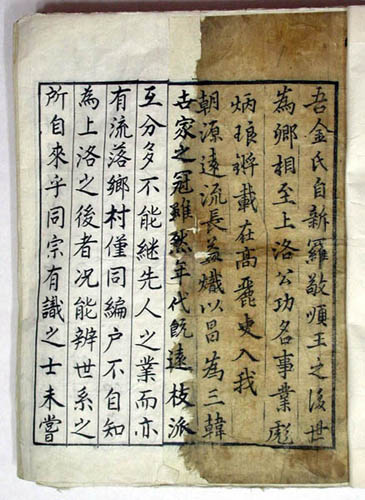 吾金氏自新羅敬順王之後世
為鄉相至上洛公功名事業彪
炳琅騈載在高麗史入我
朝源遠流長益熾以昌為三韓
古家之冠雖然年代旣遠枝派
互分多不能継先人之業而亦
有流落鄉村僅同編户不自知
為上洛之後者况能辨世系之
所自來乎同宗有識之士未嘗